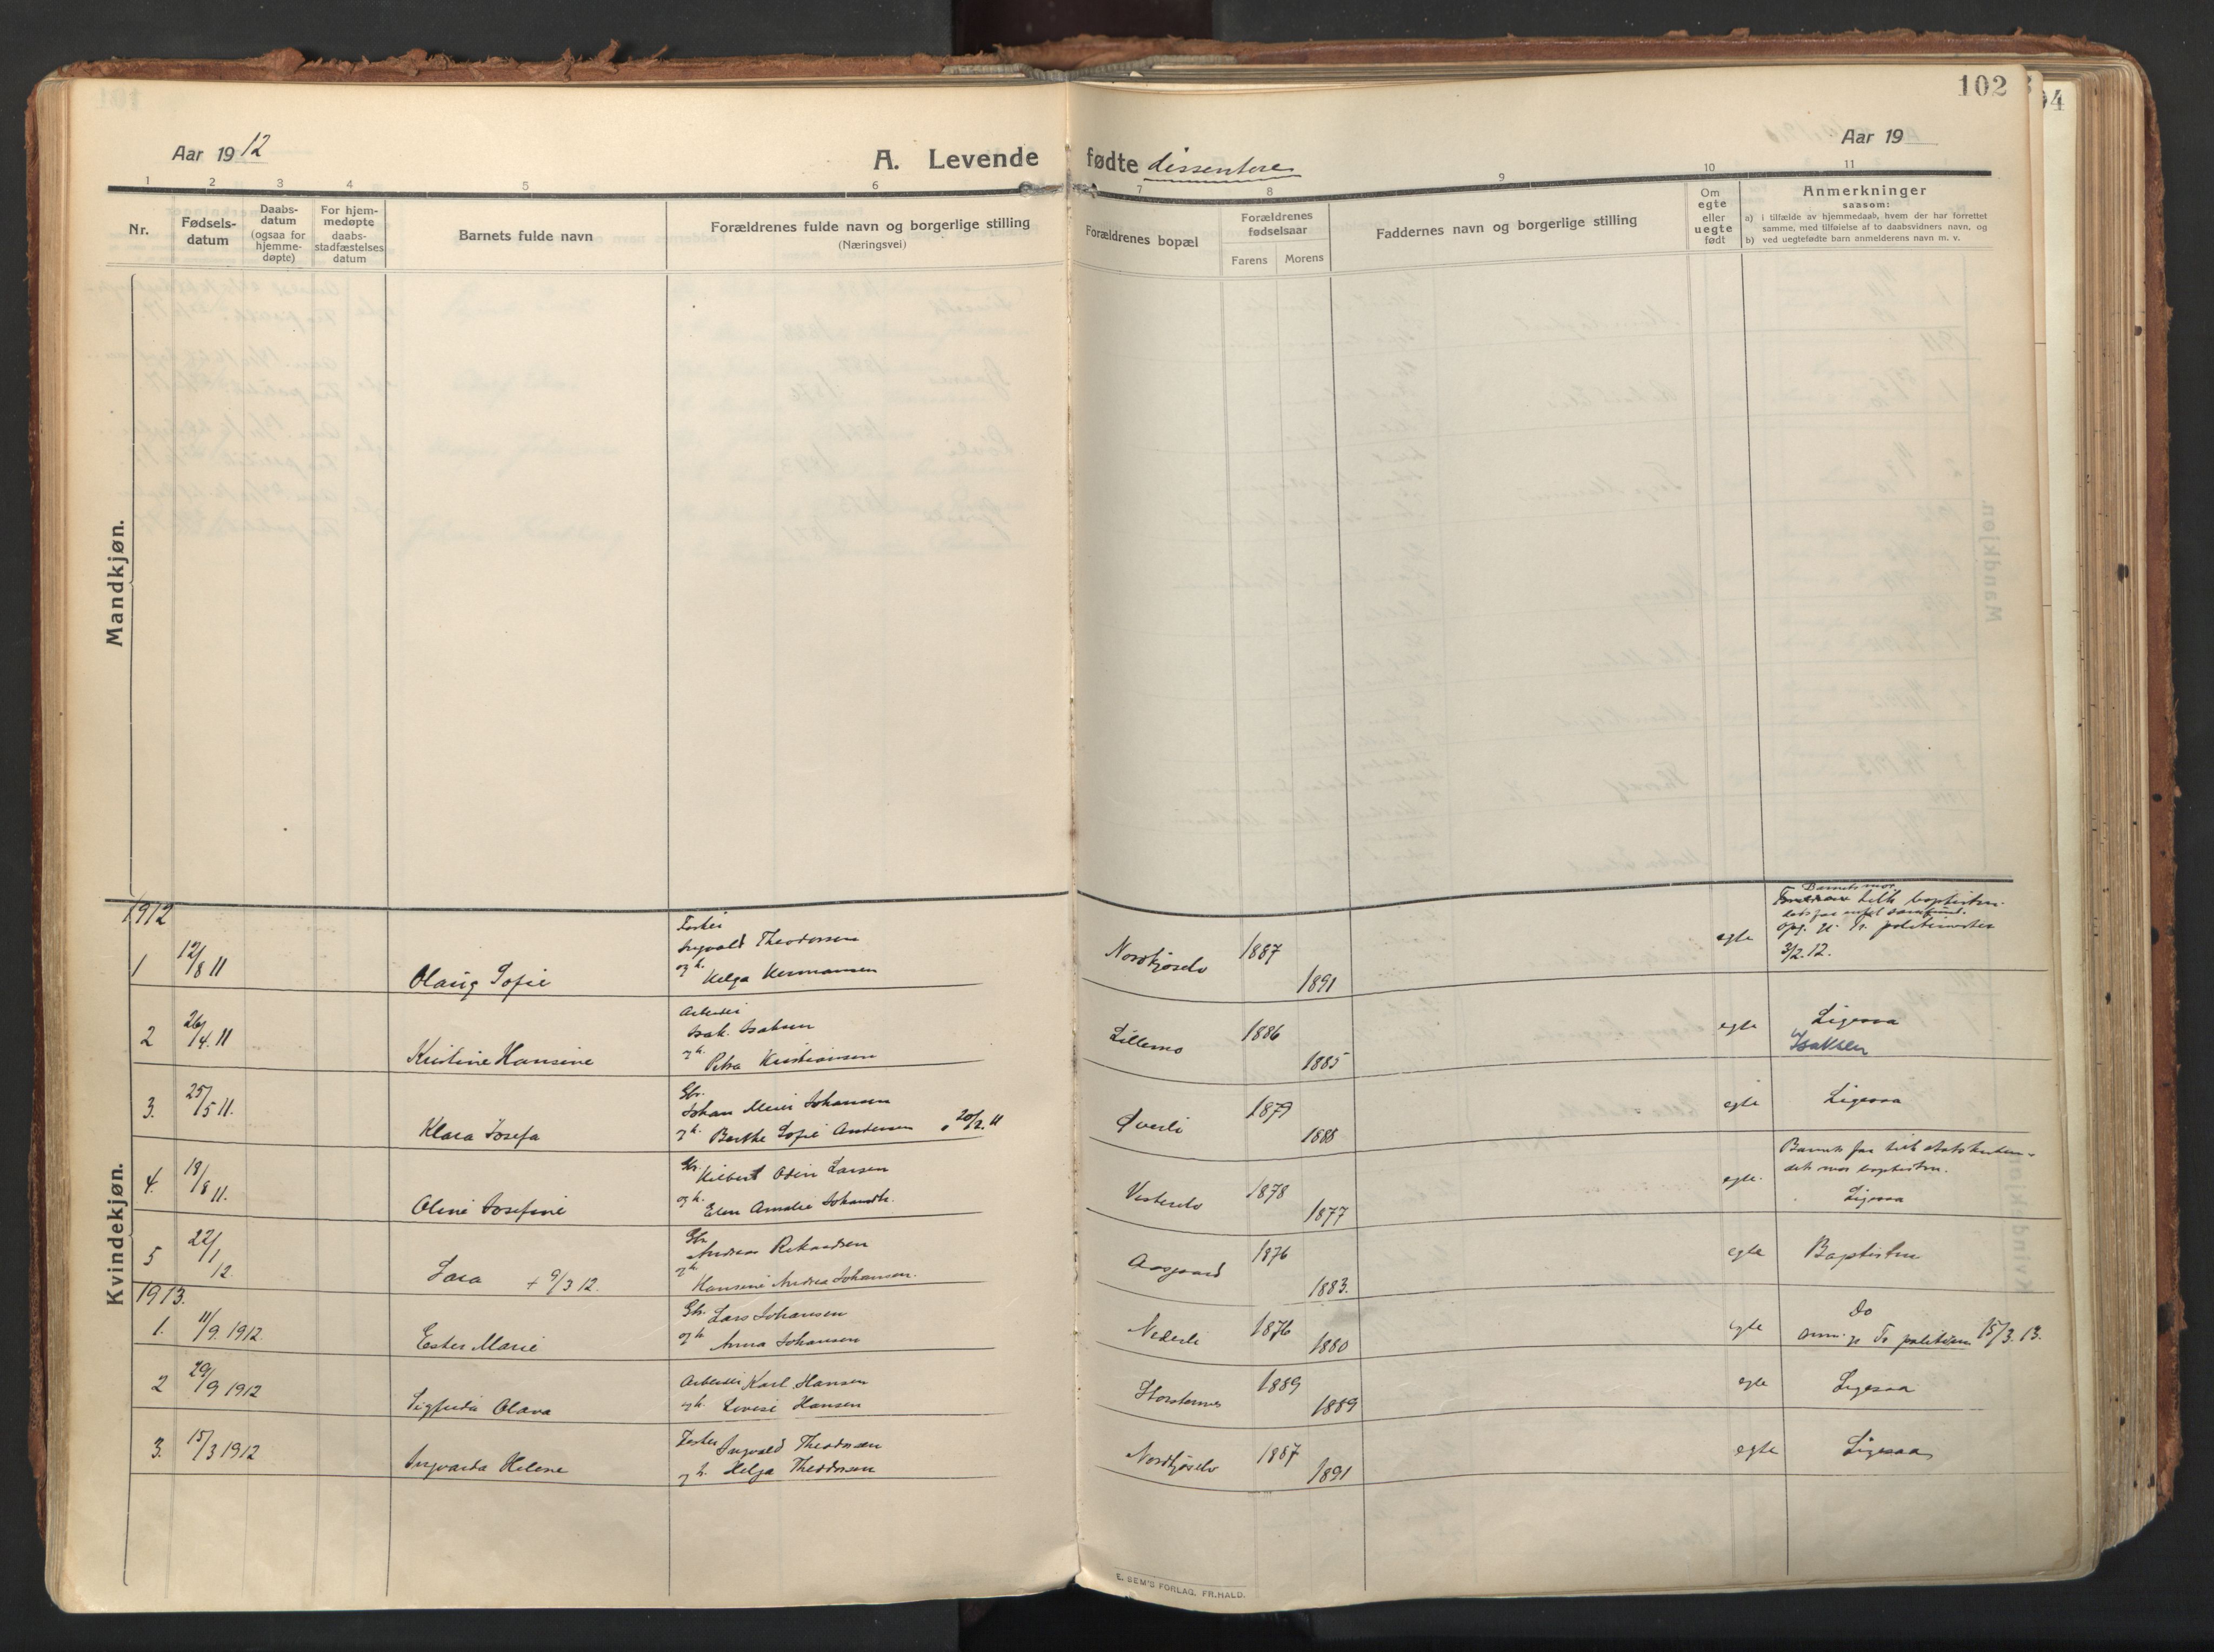 102
94
Aar 1912
A. Levende fødte dissentere
Aar 19
1 2 3 4 5 6 7 8 9 10 11
Nr.
Fødsels-
datum
Daabs-
datum
(ogsaa for
hjemme-
døpte)
For hjem-
medøpte
daabs-
stadfæstelses
datum
Barnets fulde navn
Forældrenes fulde navn og borgerlige stilling
(Næringsvei)
Forældrenes bopæl
Forældrenes
fødselsaar
Farens Morens
Faddernes navn og borgerlige stilling
Om
egte
eller
uegte
født
Anmerkninger
saasom:
a) i tilfælde av hjemmedaab, hvem der har forrettet
samme, med tilføielse af to daabsvidners navn, og
b) ved uegtefødte barn anmelderens navn m. v.
Mandkjøn.
Kvindekjøn.
1912
1 12/8 11 Olaug Sofie
Ingvald Theodorsen
og h. Helga Hermansen
Nordkjoselv 1887 1891 egte
Barnets mor
politimester
3/2. 12.
2 26/4. 11 Kristine Hansine
Arbeider
Isak Isaksen
og h. Petra Kristiansen
Lillemo 1886 1885 egte Ligesaa
Isaksen
3. 25/5 11. Klara Josefa
Gbr.
Johan Meier Johansen
og h. Berthe Sofie Andersen 20/2. 11
Øverli 1879 1888 egte Ligesaa
4. 18/8 11. Oline Josefine
Gbr. Hilbert Odin Larsen
og h. Elen Amalie Johansdtr.
Vesterelv 1878 1877 egte.
Barnets far
Ligesaa
5 22/1 12. Sara + 9/3 12.
Gbr.
Andreas Rikardsen
og h.
Hansine Andrea Johansen.
Aasgaard 1876 1883. egte
1913.
1. 11/9. 1912. Ester Marie
Gbr. Lars Johansen
og h. Anna Johansen
Nederli 1876 1880 egte Do
15/3. 13.
2 29/9 1912 Sigfrida Olava
Arbeider Karl Hansen
og h. Lovise Hansen
1889 1889 egte Ligesaa
3. 15/3 1912 Ingvarda Helene
Ingvald Theodorsen
og h. Helga Theodorsen
Nordkjoselv 1887 1891 egte Ligesaa
E. SEM'S FORLAG. FR.HALD.